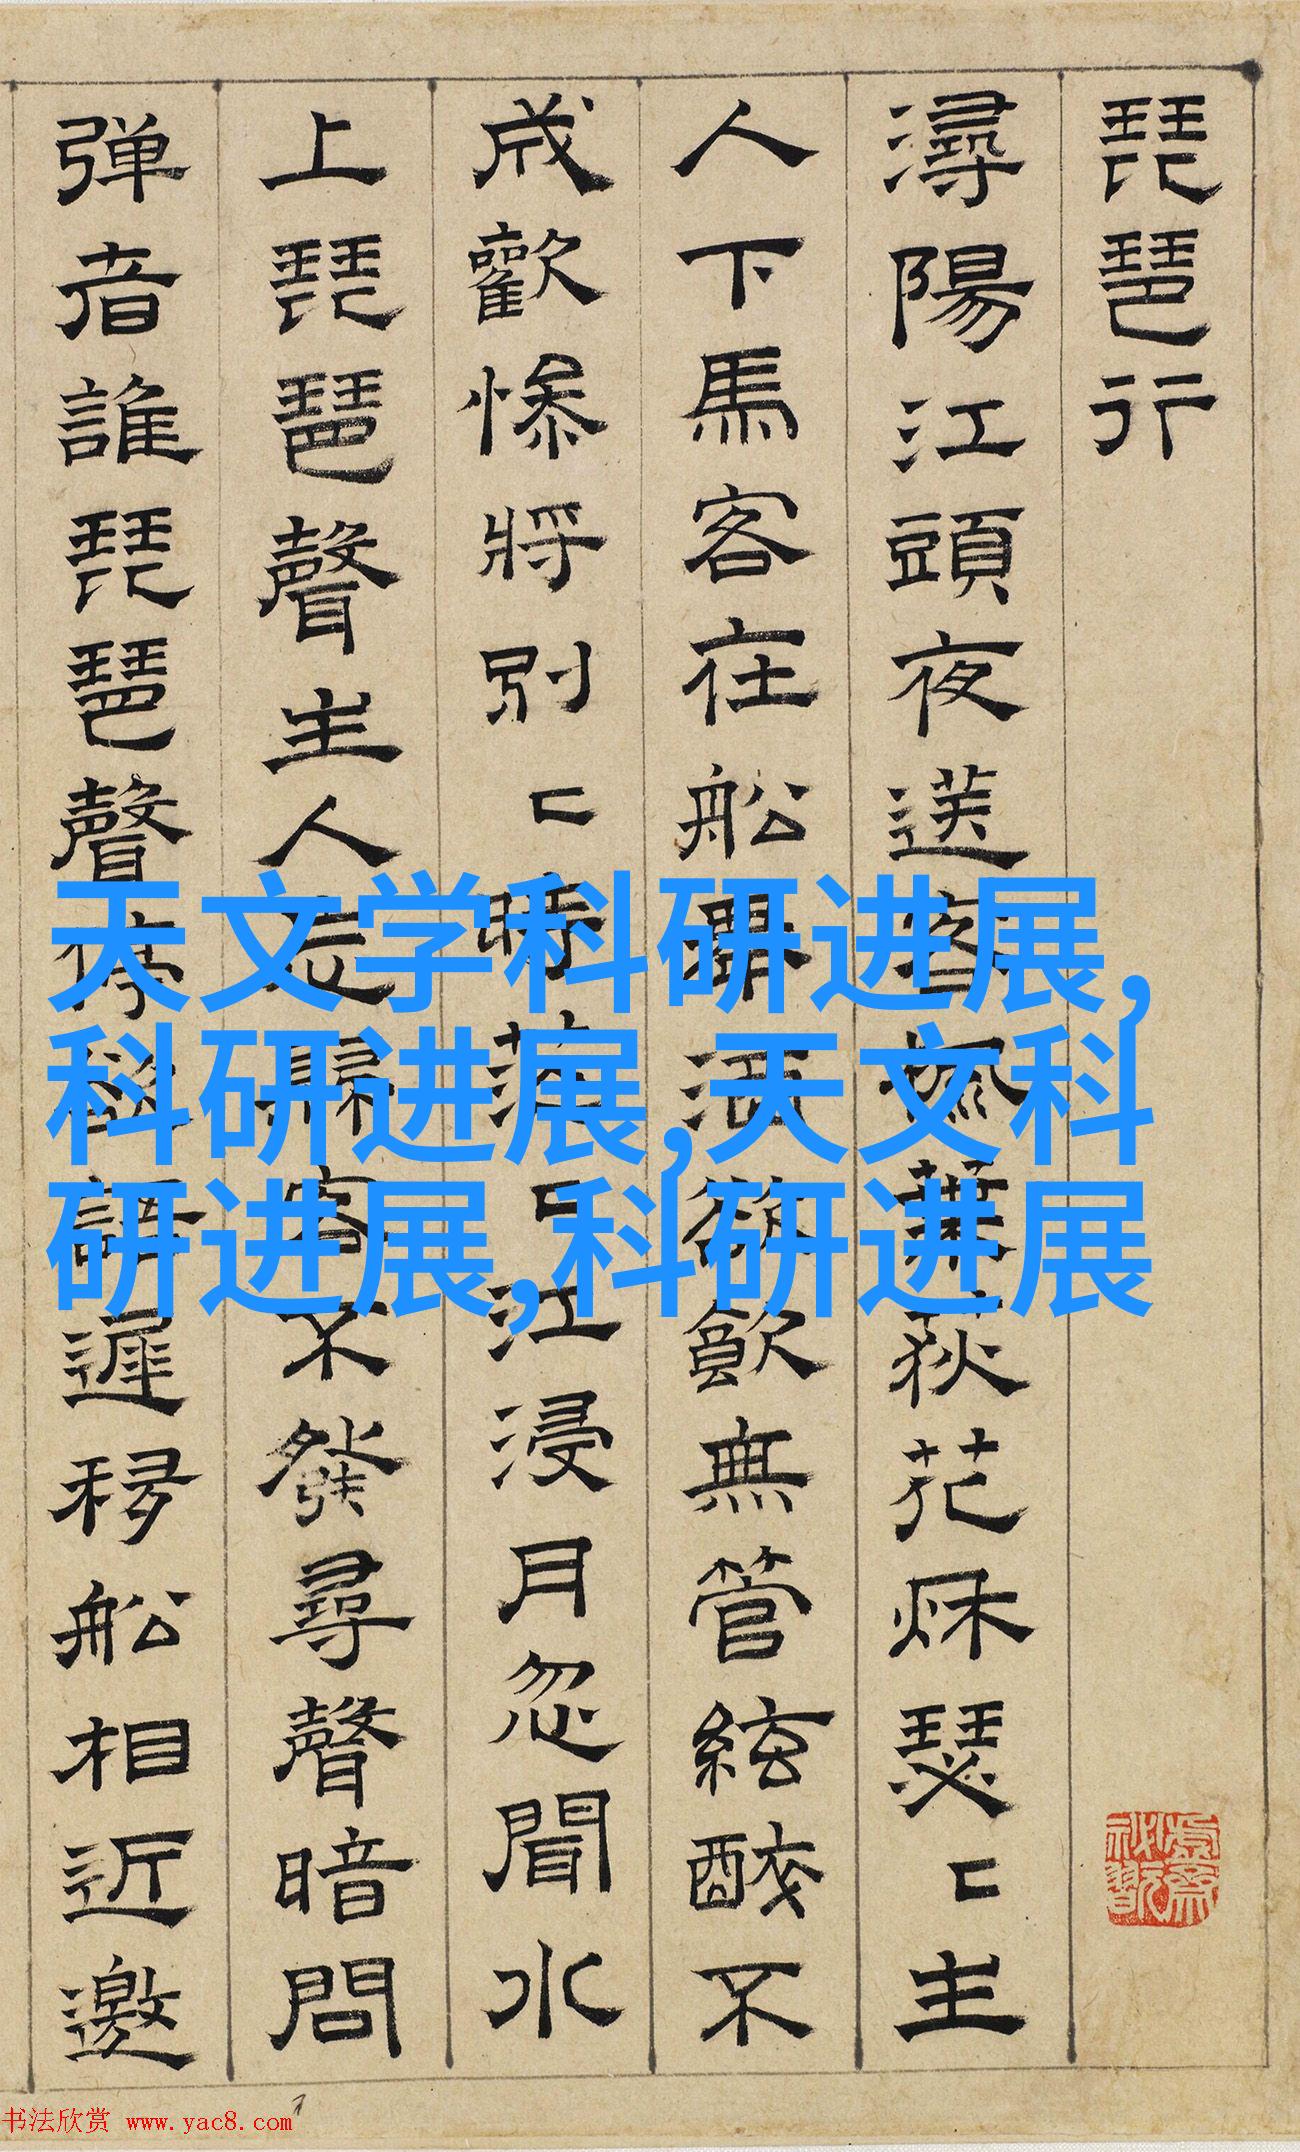 琵琶行
潯陽江頭夜送客楓葉荻花秋瑟〻主
人下馬客在船舉酒欲飲無管絃醉不
成歡慘將別〻時茫〻江浸月忽聞水
上琵琶聲主人忘歸客不發尋聲暗問
弹者誰琵琶聲停欲語遲移船相近邀
天文学科研进展,
科研进展,天文科
研进展,科研进展
书法欣赏 www.yac8.com